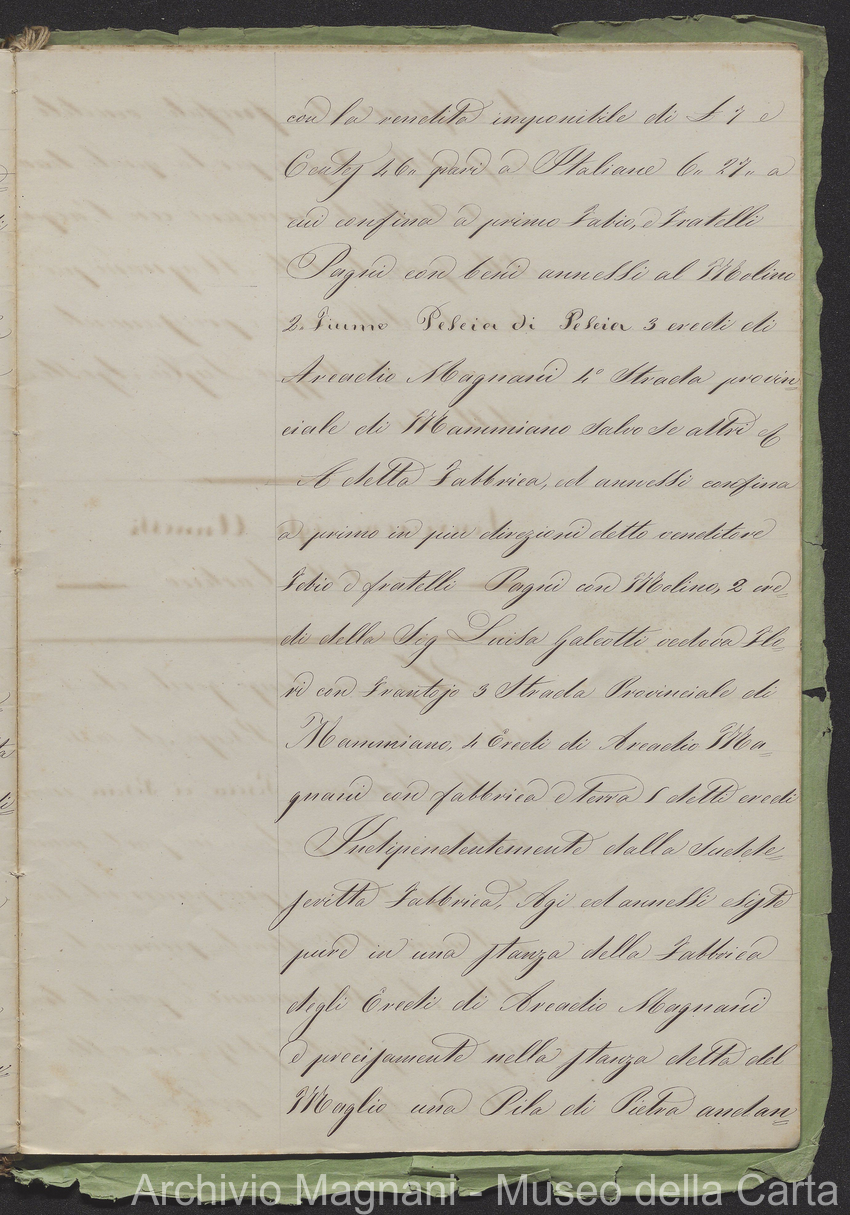 con la rendita imponibile di £ 7 e
Centj 46,, pari a Italiane 6,, 27,, a
cui confina a primo Fabio, e Fratelli
Pagni con beni annessi al Molino
2. Fiume Pescia di Pescia 3 eredi di
Arcadio Magnani 4° Strada provin=
ciale di Mammiano salvo se altri &
A detta Fabbrica, ed annessi confina
a primo in piu direzioni detto venditore
Fabio e fratelli Pagni con Molino, 2 ere=
di della Sig Luisa Galeotti vedova Flo=
ri con Frantojo 3 Strada Provinciale di
Mammiano, 4 Eredi di Arcadio Ma=
gnani con fabbrica e terra 5 detti eredi
Indipendentemente dalla suddes=
critta Fabbrica, Agi ed annessi esiste
pure in una stanza della Fabbrica
degli Eredi di Arcadio Magnani
e precisamente nella stanza detta del
Maglio una Pila di Pietra andan=
Archivio Magnani - Museo della Carta